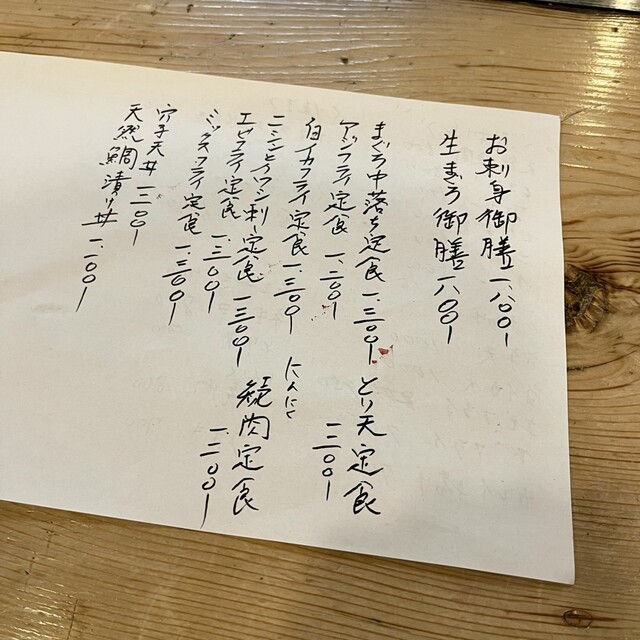 お刺身御膳 一、八〇〇ー
生まぐろ御膳 一八〇〇ー
まぐろ中落ち定食 一、三〇〇ー
アジフライ定食 一、二〇〇ー
白イカフライ定食 一、三〇〇ー
ニシンとイワシ刺し定食 一三〇〇ー
エビフライ定食 一、三〇〇ー
ミックスフライ定食 一、三〇〇ー
穴子天丼 一三〇〇ー
天然鯛漬け丼 一、一〇〇ー
とり天定食
一二〇〇ー
にんにく
焼肉定食
一、二〇〇ー